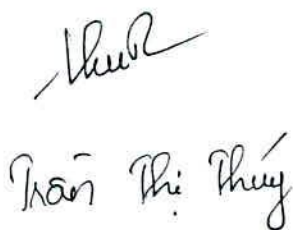 Trần Thị Thúy